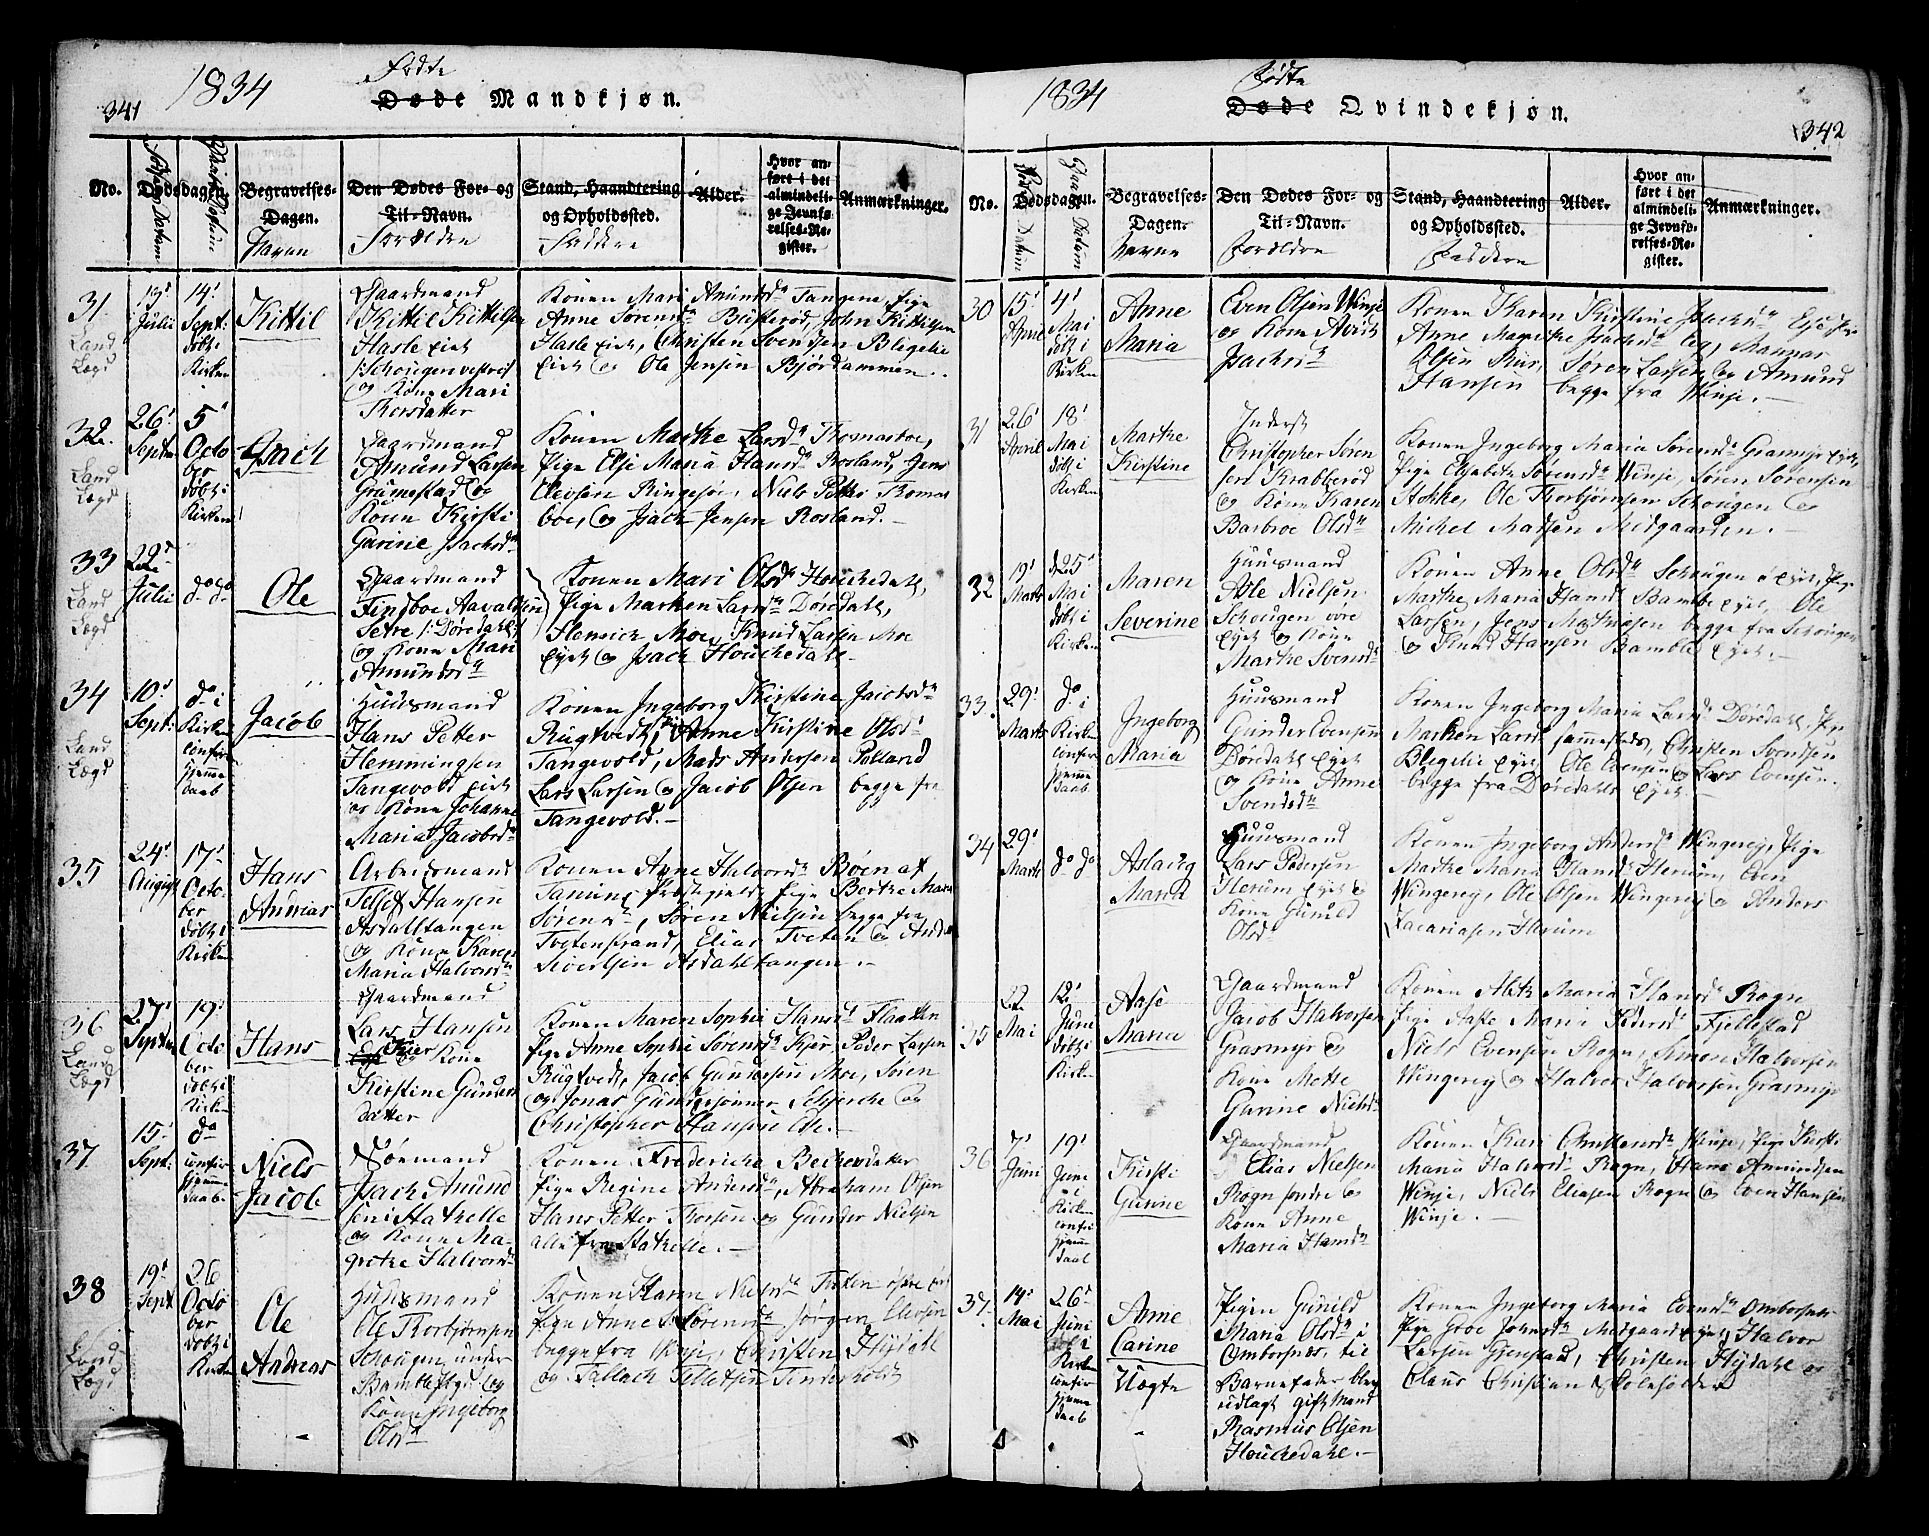 341
1834
Fødte
Døde Mandkjøn.
No.
Fødsels Datum
Daabs Datum
Dødsdagen.
Begravelses-
Dagen.
Navn
Den Dødes For- og
Til-Navn.
Forældre
Stand, Haandtering
og Opholdssted.
Faddere
Alder.
Hvor an-
ført i det
almindeli-
ge Jevnfø-
relses-Re-
gister.
Anmærkninger.
31
Land
Lægd
13de
Julii
14'
Sept:
døbt i
Kirken
Kittil
Gaardmand
Kittil Kittilsen
Hasle eiet
og Kone Mari
Thorsdatter
Konen Mari Amunds Tangene, Pige
Anne Sørensd. Busterød, John Kittilsen
Hasle eiet, Christen Svendsen Blegelie
eiet og Ole Jensen Bjørdammen.
32.
Land
Lægd
26'
Septem
5'
Octo
ber
døbt i
Kirken
Isach
Gaardmand
Amund Larsen
Grumestad og
Kone Kirsti
Gurine Isachsd.
Konen Marthe Larsd. Thomasboe,
Pige Else Maria Hansd. Rosland, Jens
Olevsen Ringesjø, Niels Petter Thomas
boe, og Isach Jensen Rosland.-
33
Land
Lægd
22de
Julii
do do
Ole
Gaardmand
Findboe Aavaldsen
Setre /: Døredahl:/
og Kone Mari
Amundsd.
Konen Mari Olsd. Houchedahl,
Pige Marken Larsd. Døredahl,
Henrich Moe, Knud Larsen Moe
eiet og Isach Houchedahl.
34
Land
Lægd
10'
Sept:
do i
Kirken
confir
hjemme
daab
Jacob
Huusmand
Hans Petter
Hemmingsen
Tangevold eiet
og Kone Johanne
Maria Jacobsd.
Konen Ingeborg Kirstine Jacobsd.
Rugtvedt, Pige Anne Kirstine Olsd.
Tangevold, Mads Andersen Valland
Lars Larsen og Jacob Olsen begge fra
Tangevold.-
35
24'
August
17'
Octo-
ber
døbt i
Kirken
Hans
Andreas
Arbeidsmand
Tellef Hansen
Asdaltangen
og Kone Karen
Maria Halvorsd.
Konen Anne Halvorsd. Bøen af
Sannings Præstegield, Pige Berthe Maria
Sørensd., Søren Nielsen begge fra
Tvetenstrand, Elias Tveten og Anders
Sivertsen Asdahltangen.-
36
Land
Lægd
27'
Septem
19'
Octo
ber
døbt i
Kirken
Hans
Gaardmand
Lars Hansen
Kjær og Kone
Kirstine Gunders
datter
Konen Maren Sophie Hansd. Flaatten
Pige Anne Sophie Sørensd. Kjær, Peder Larsen
Rugtvedt, Jacob Gundersen Moe, Søren
og Jonas Gundersønner Schjerche og
Christopher Hansen Ede.-
37
15'
Sept:
do
confir
hjemme
daab
Niels
Jacob
Søemand
Isach Amund
sen Stathelle
og Kone Ma-
grethe Halvorsd.
Konen Frederiche Bechersdatter
Pige Regine Andersd., Abraham Olsen
Hans Petter Thorsen og Gunder Nielsen
alle fra Stathelle.-
38
Land
Lægd
19'
Sept
26
Octo
ber
døbt i
Kirken
Ole
Andreas
Huusmand
Ole Thorbjørnsen
Schougen under
Bamble Prgd. og
Kone Ingeborg
Olsd.
Konen Karen Nielsd. Tveten østre eiet
Pige Anne S. Sørensd., Jørgen Olevsen
begge fra Winje, Christen Hydahl
og Tallach Tellefsen Tinderholt
342
1834
Fødte
Døde Qvindekjøn.
No.
Fødsels Datum
Daabs Datum
Dødsdagen.
Begravelses-
Dagen.
Navne
Den Dødes For- og
Til-Navn.
Forældre
Stand, Haandtering
og Opholdssted.
Faddere
Alder.
Hvor an-
ført i det
almindeli-
ge Jevnfø-
relses-Re-
gister.
Anmærkninger.
30
15'
April
4'
Mai
døbt i
Kirken
Anne
Maria
Even Olsen Winje
og Kone
Isachsd.
Konen Karen Kirstine Isachsd.
Anne Magrethe Isachsd.
Olsen Ruis, Søren Larsen og Amund
Hansen begge fra Winje.-
31
26'
April
18'
Mai
døbt i
Kirken
Marthe
Kirstine
Inderst
Christopher Søren
sen Krabberød
og Kone Karen
Barbroe Olsd.
Konen Ingeborg Maria Sørensd. Grasmyr eiet,
Pige Elisabeth Sørensd. Winje, Søren Sørensen
Stokke, Ole Thorbjørnsen Schougen og
Michel Madsen Midgaarden.
32
19'
Marts
25'
Mai
døbt i
Kirken
Maren
Severine
Huusmand
Ole Nielsen
Schougen øvre
eiet og Kone
Marthe Svensd.
Konen Anne Olsd. Schougen eiet, Pige
Marthe Maria Hansd. Bamble eiet, Ole
Larsen, Jens Mathiesen begge fra Schougen
og Knud Hansen Bamble eiet.-
33.
29'
Marts
do i
Kirken
confir
hjemme
daab
Ingeborg
Maria
Huusmand
Gunder Evensen
Døredahl eiet
og Kone Anne
Svendsd.
Konen Ingeborg Maria Larsd. Døredahl, Pige
Marken Larsd. sammesteds, Christen Svendsen
Blegelie eiet, Ole Evensen og Lars Evensen
begge fra Døredahls eiet.
34
29'
Marts
do do
Aslaug
Maria
Huusmand
Lars Pedersen
Herum eiet og
Kone Gunild
Olsd.
Konen Ingeborg Andersd. Wingerej, Pige
Marthe Maria Hansd. Herum, Even
Wingerej, Ole Olsen Wingerej og Anders
Zacariasen Herum
35
22
Mai
12'
June
døbt i
Kirken
Aase
Maria
Gaardmand
Jacob Halvorsen
Grasmyr og
Kone Mette
Gurine Nielsd.
Konen Maria Hansd. Rogn
Pige Aaste Maria Pedersd. Fjellestad
Niels Evensen Rogn, Simon Halvorsen
Wingerej og Halvor Halvorsen Grasmyr
36
7'
Juni
19'
June
i
Kirken
confir
hjemme
daab
Kirsti
Gunine
Gaardmand
Elias Nielsen
Rogn søndre og
Kone Anne
Maria Hansd.
Konen Kari Christensd. Winje, Pige Kirsti
Maria Halvorsd. Rogn, Hans Amundsen
Winje, Niels Eliasen Rogn og Even Hansen
Winje.-
37.
14'
Mai
26'
Juni
døbt i
Kirken
confir
hjemme
daab
Anne
Carine
Uægte
Pigen Gunild
Maria Olsd. i
Omborsnæs, til
Barnefader blev
udlagt gift Mand
Rasmus Olsen
Houchedahl.-
Konen Ingeborg Maria Evensd. Omborsnæs
Pige Groe Johnsd. Midgaard eiet, Halvor
Larsen Gjenstad, Christen Hydahl og
Claus Christian Skoleholder